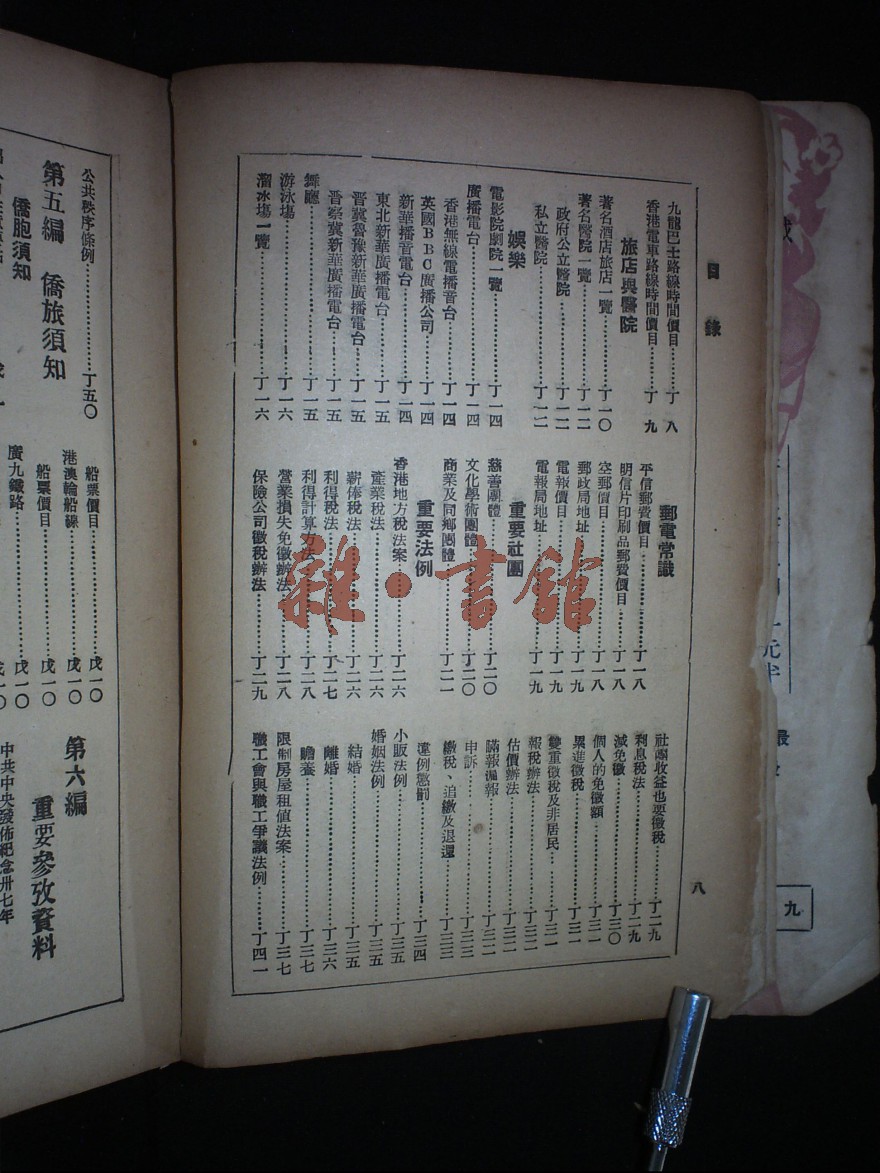 目錄
八
九龍巴士路線時間價目………丁八
香港電車路線時間價目………丁九
旅店與醫院
著名酒店旅店一覽………丁一〇
著名醫院一覽………丁一二
政府公立醫院………丁一二
私立醫院………丁一二
娛樂
電影院劇院一覽………丁一四
廣播電台………丁一四
香港無線電播音台………丁一四
英國BBC廣播公司………丁一四
新華播音電台………丁一四
東北新華廣播電台………丁一五
晋冀魯豫新華廣播電台………丁一五
晋察冀新華廣播電台………丁一五
舞廳………丁一五
游泳塲………丁一六
溜冰塲一覽………丁一六
郵電常識
平信郵費價目………丁一八
明信片印刷品郵費價目………丁一八
空郵價目………丁一八
郵政局地址………丁一九
電報價目………丁一九
電報局地址………丁一九
重要社團
慈善團體………丁二〇
文化學術團體………丁二〇
商業及同鄉團體………丁二一
重要法例
香港地方稅法案………丁二六
產業稅法………丁二六
薪俸稅法………丁二六
利得稅法………丁二七
利得計算方法………丁二八
營業損失免徵辦法………丁二八
保險公司徵稅辦法………丁二九
社團收益也要徵稅………丁二九
利息稅法………丁二九
減免徵………丁三〇
個人的免徵額………丁三一
累進徵稅………丁三一
雙重徵稅及非居民………丁三一
報稅辦法………丁三二
估價辦法………丁三二
瞞報漏報………丁三二
申訴………丁三三
繳稅、追繳及退還………丁三三
違例懲罰………丁三四
小販法例………丁三五
婚姻法例………丁三五
結婚………丁三五
離婚………丁三六
贍養………丁三七
限制房屋租值法案………丁三七
職工會與職工爭議法例………丁四一
公共秩序條例………丁五〇
第五編 僑旅須知
僑胞須知
船票價目………戊一〇
港澳輪船線………戊一〇
船票價目………戊一〇
廣九鐵路………戊一〇
第六編
重要參攷資料
中共中央發佈紀念卅七年
雜·書館
元半
九